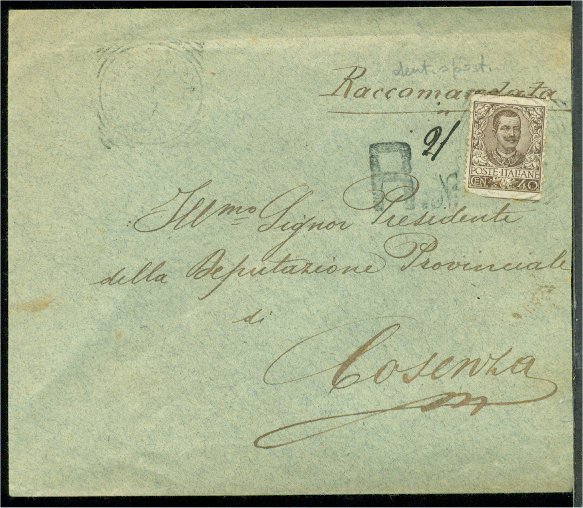 Raccomandata
21
R.
POSTE ITALIANE
CEN. 40
Ill.mo Signor Presidente
della Deputazione Provinciale
di
Cosenza